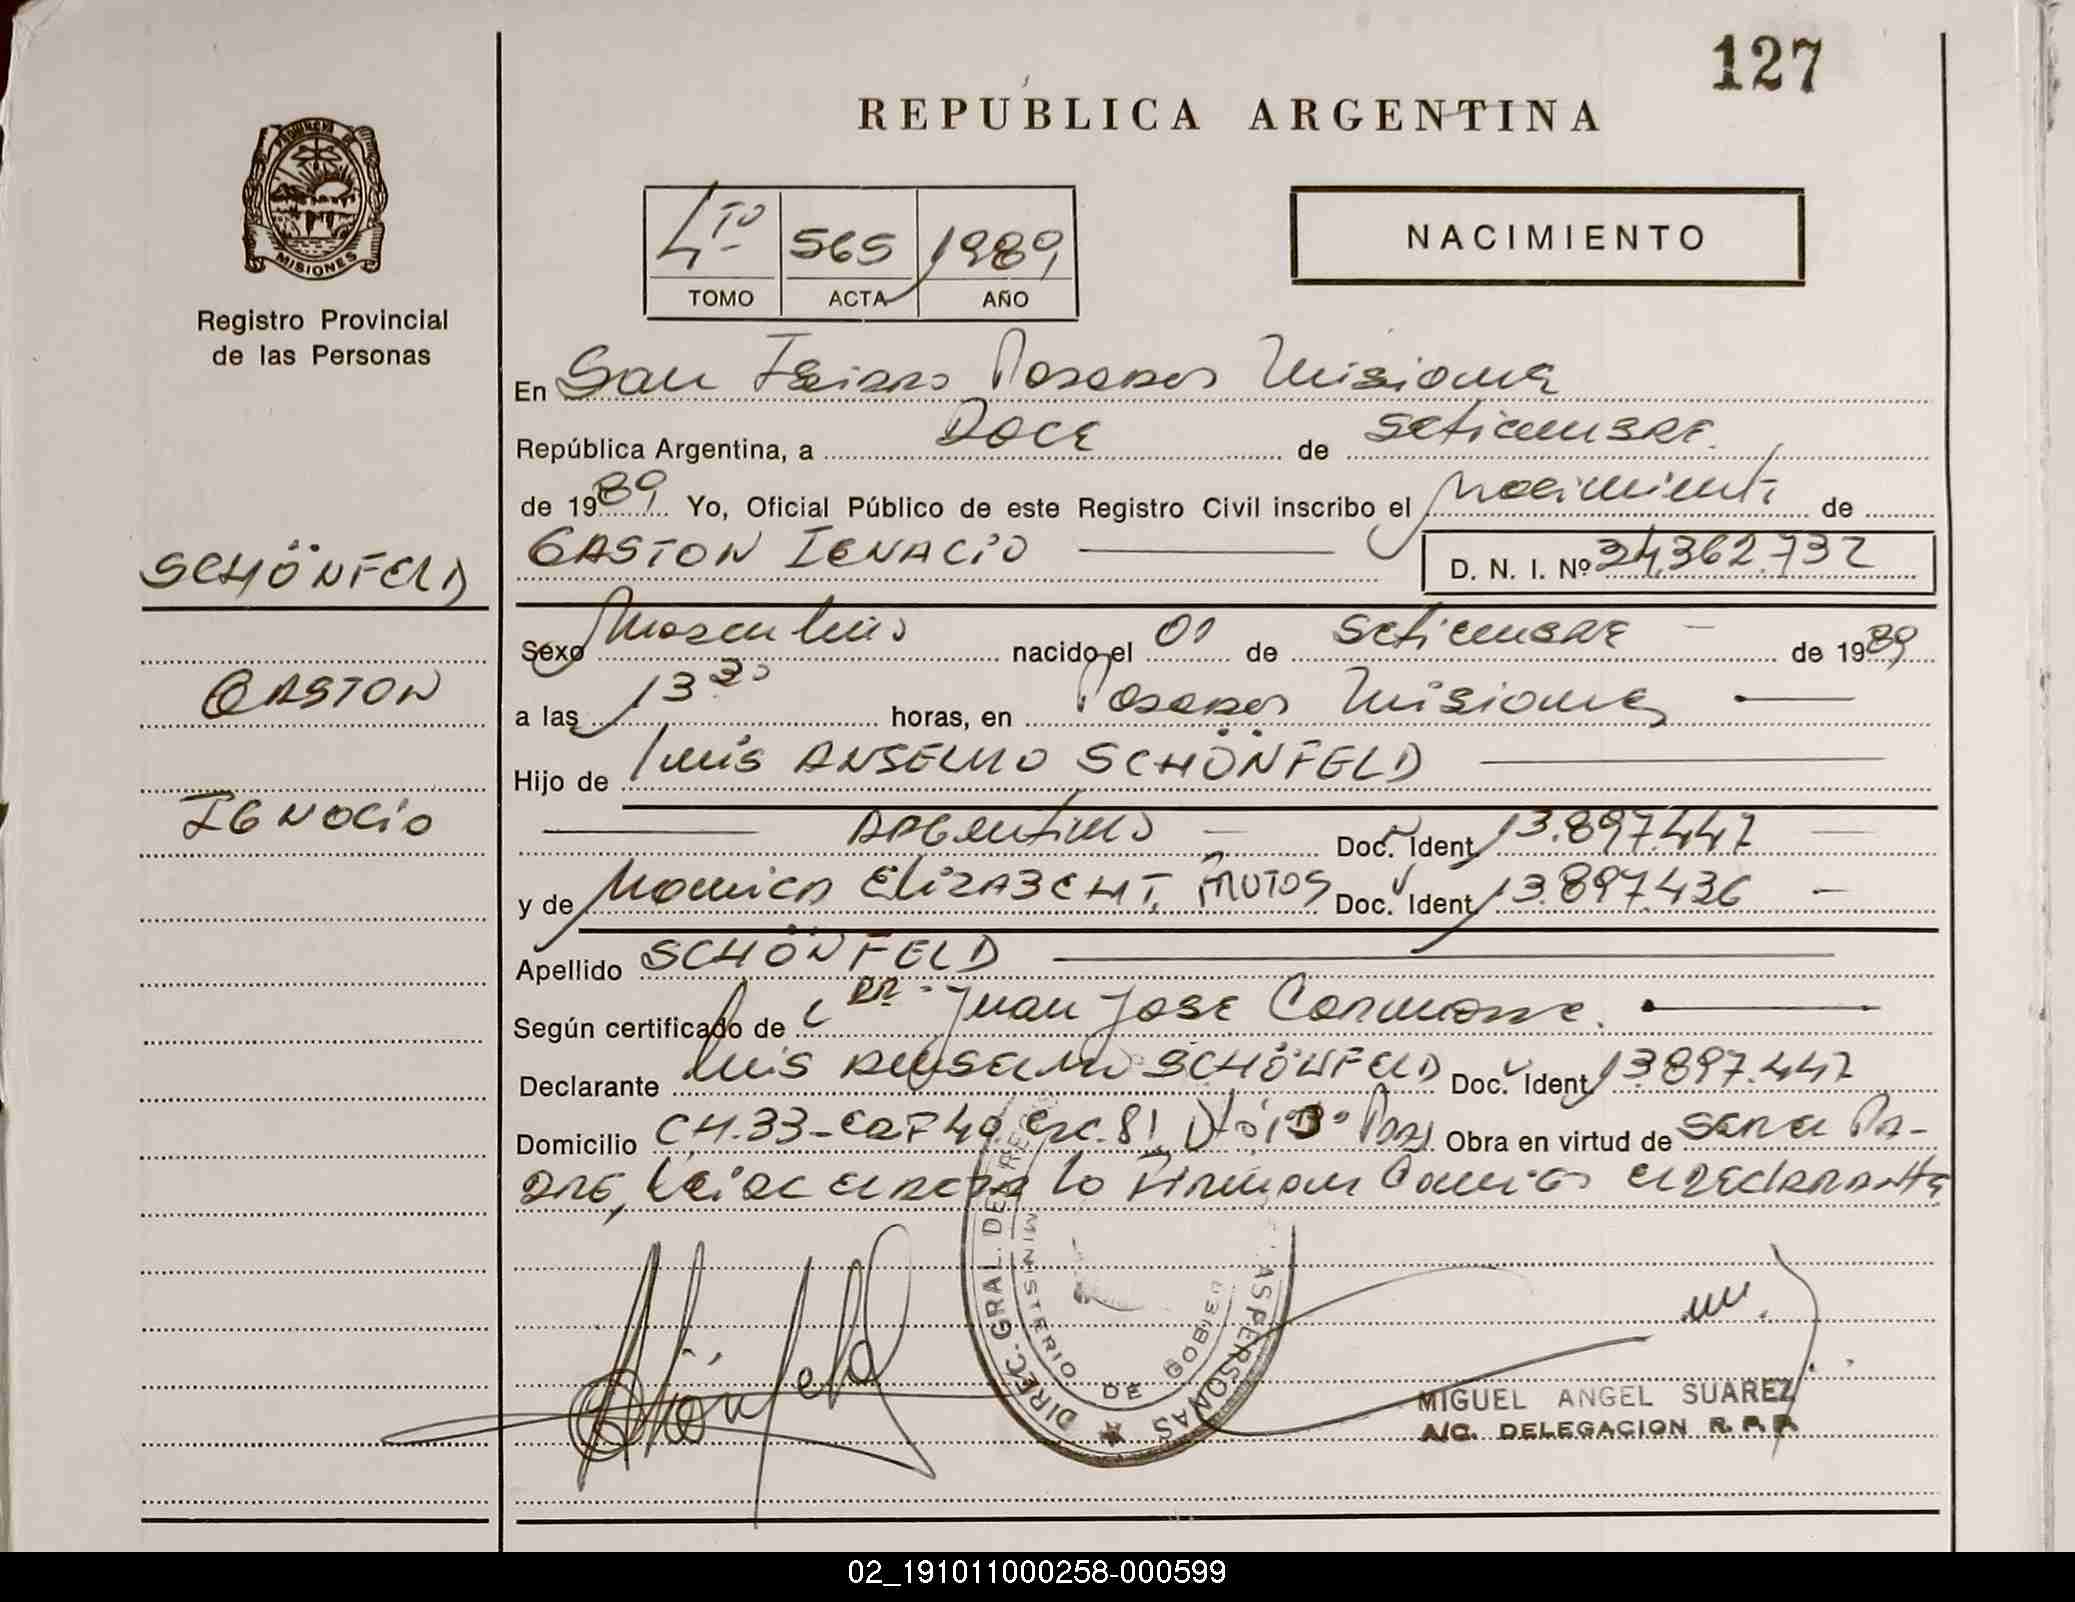 127
REPUBLICA ARGENTINA
PROVINCIA DE
MISIONES
Registro Provincial
de las Personas
4to 565 1989
TOMO ACTA AÑO
NACIMIENTO
En San Isidro Posadas Misiones
República Argentina, a Doce de Setiembre
de 1989 Yo, Oficial Público de este Registro Civil inscribo el Nacimiento de
SCHÖNFELD
GASTON IGNACIO D. N. I. Nº 34.362.732
Sexo Masculino nacido el 01 de Setiembre de 1989
GASTON
a las 13 horas, en Posadas Misiones
Hijo de Luis ANSELMO SCHÖNFELD
IGNACIO
ARGENTINO Doc. Ident 13.897.447
y de Monica ELIZABEHT FRUTOS Doc. Ident 13.897.436
Apellido SCHÖNFELD
Según certificado de DR. Juan Jose
Declarante Luis ANSELMO SCHÖNFELD Doc. Ident 13.897.447
Domicilio CH.33- 740 Esc. 81 Obra en virtud de ser el Pa-
dre, Leida el acta lo Firman Conmigo el Declarante
Schönfeld
DIREC. GRAL. DE REG. LAS PERSONAS
MINISTERIO DE GOBIER
MIGUEL ANGEL SUAREZ
A/C. DELEGACION R. P. P.
02_191011000258-000599